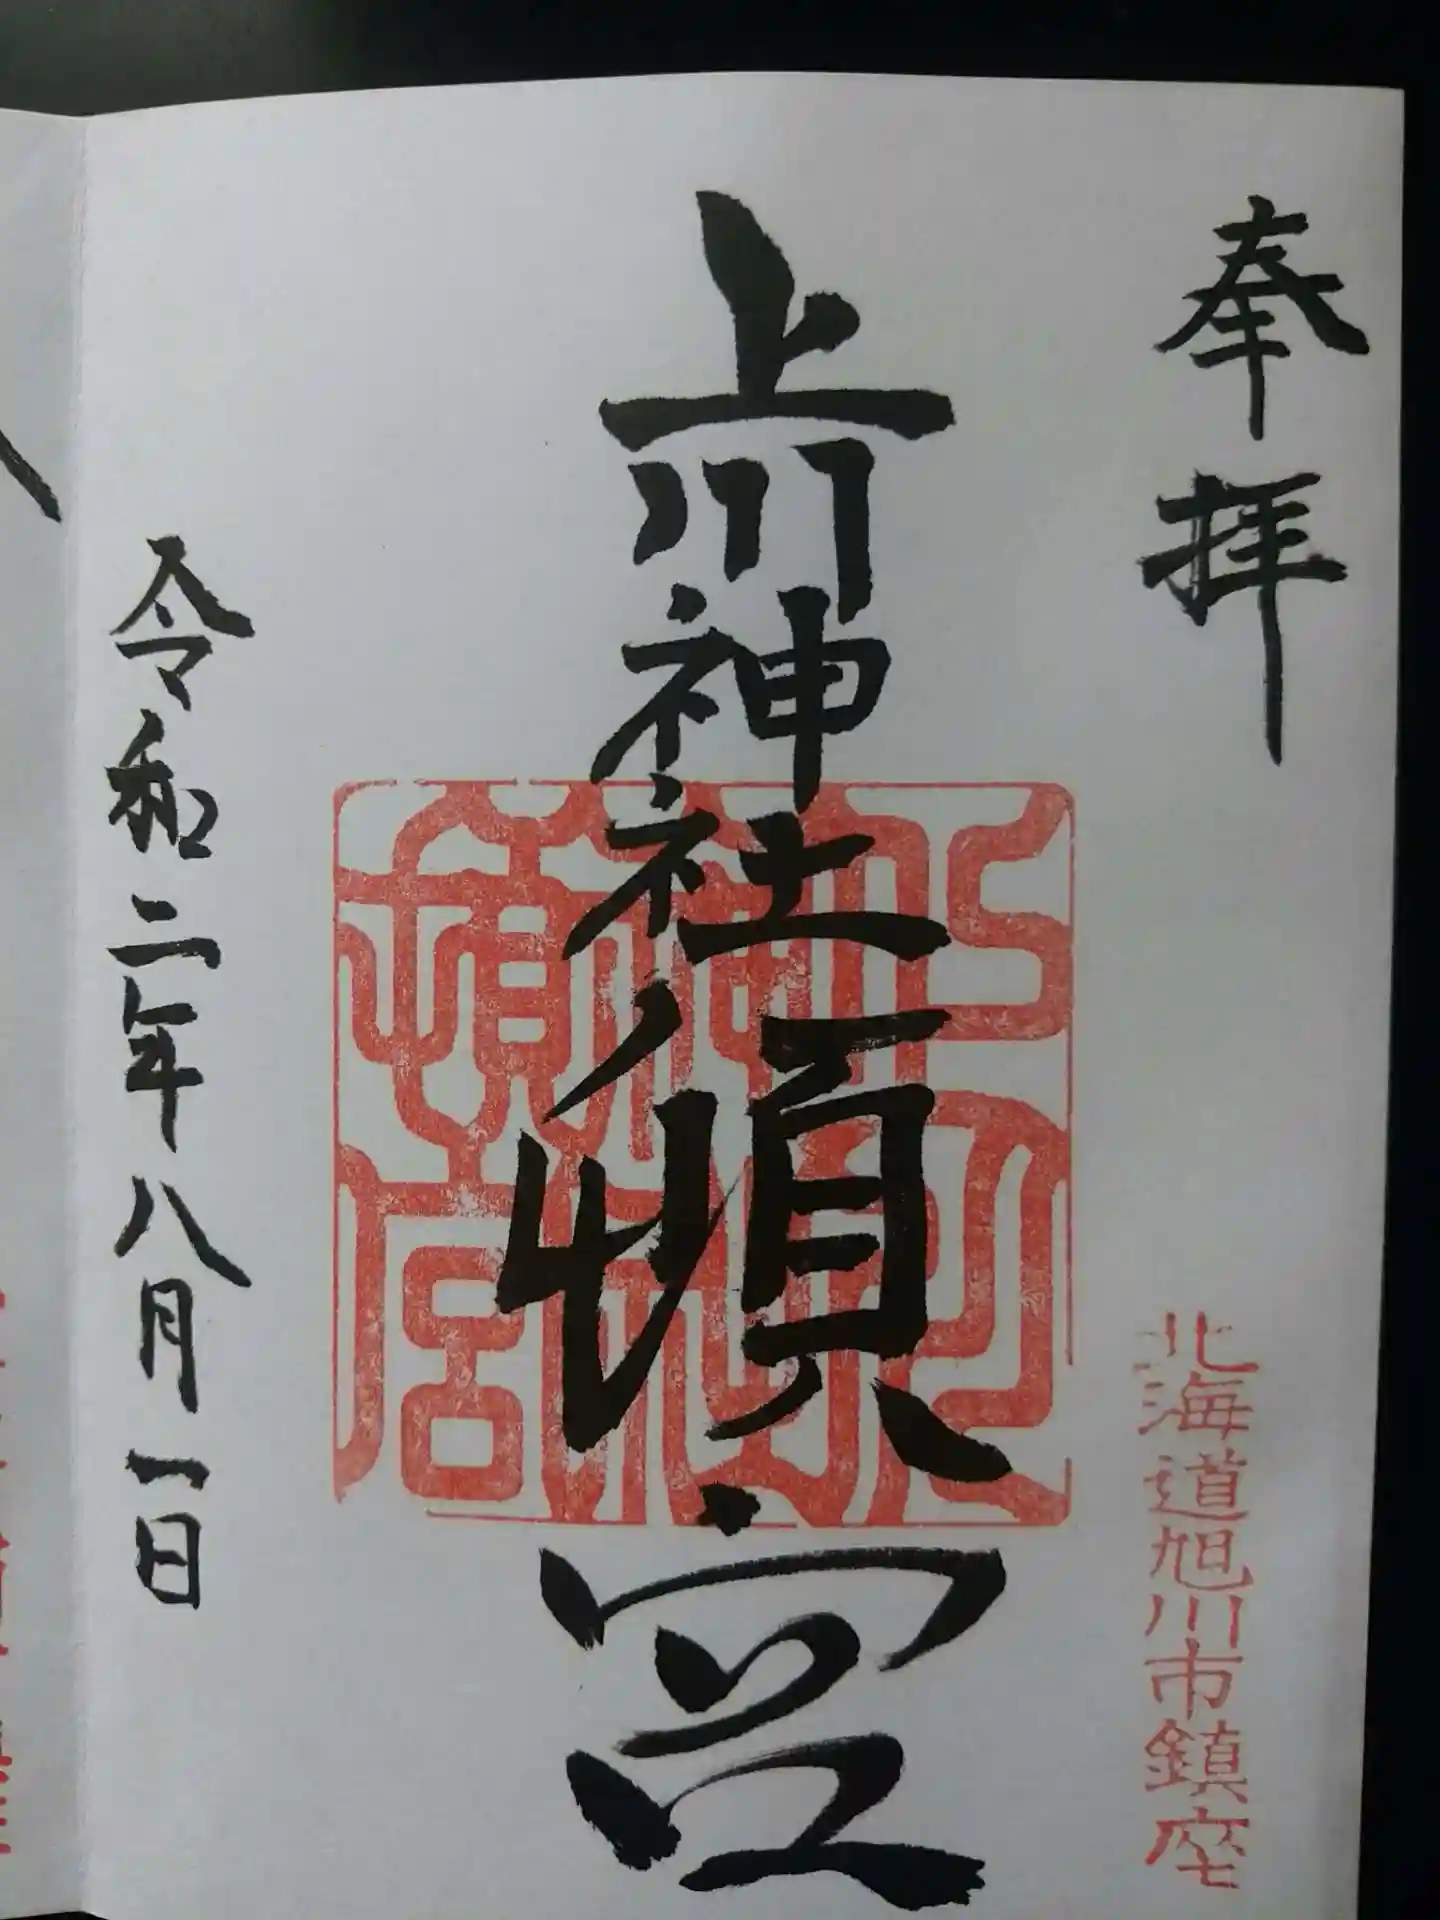 奉拝
北海道旭川市鎮座
上川神社頓宮
令和二年八月一日